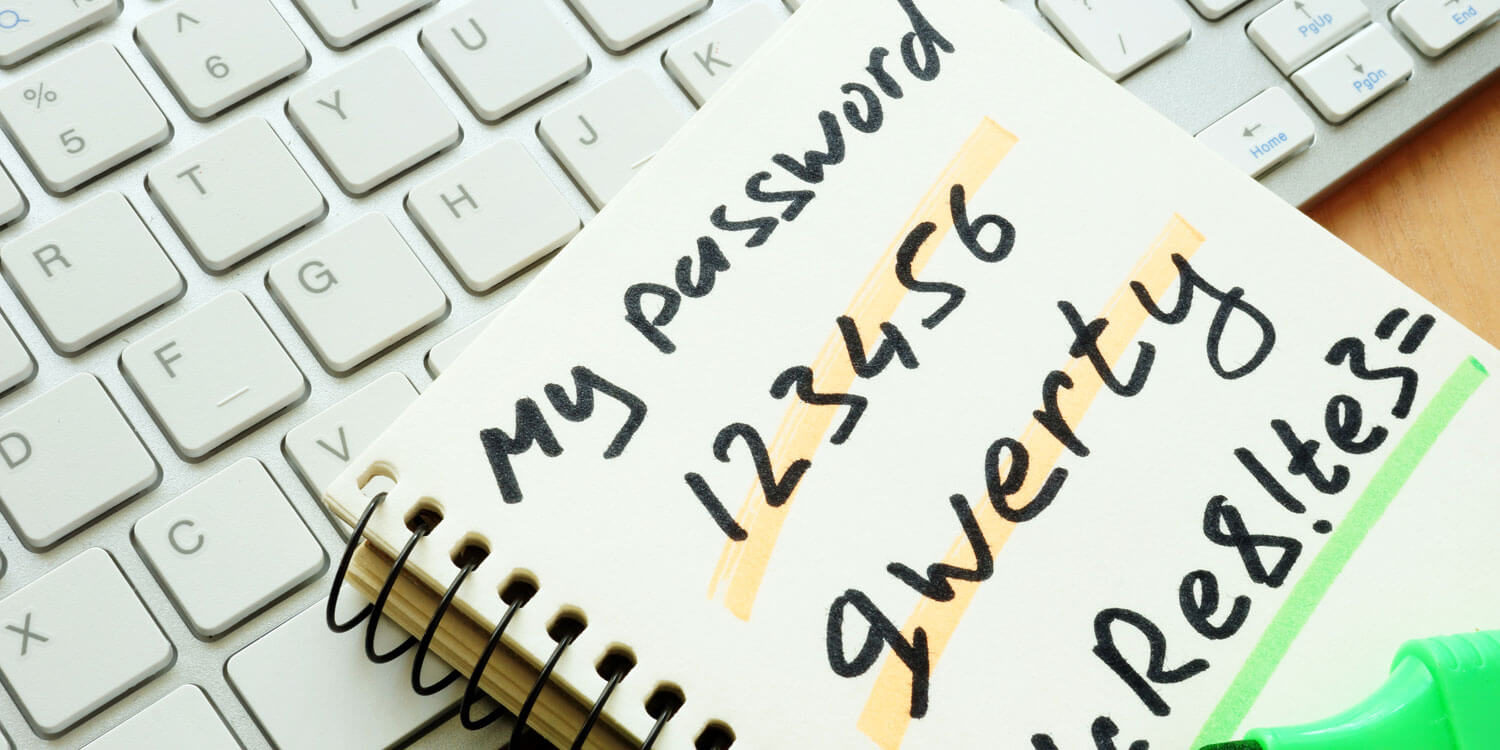 My password
123456
qwerty
Re8!te3=
^ 6
U
K
/
PgUp
End
% 5
Y
J
PgDn
T
H
Home
R
G
F
D
V
C
X